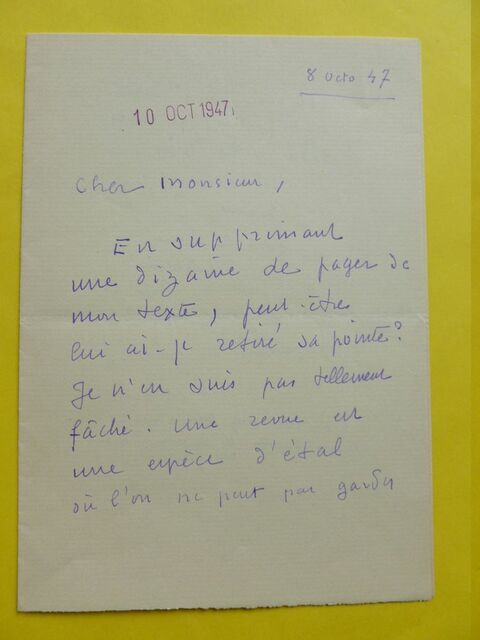 8 Octo 47
10 OCT 1947
Cher Monsieur,
En supprimant
une dizaine de pages de
mon texte, peut-être
lui ai-je retiré sa pointe?
Je n'en suis pas tellement
fâché. Une revue est
une espèce d'étal
où l'on ne peut pas garder